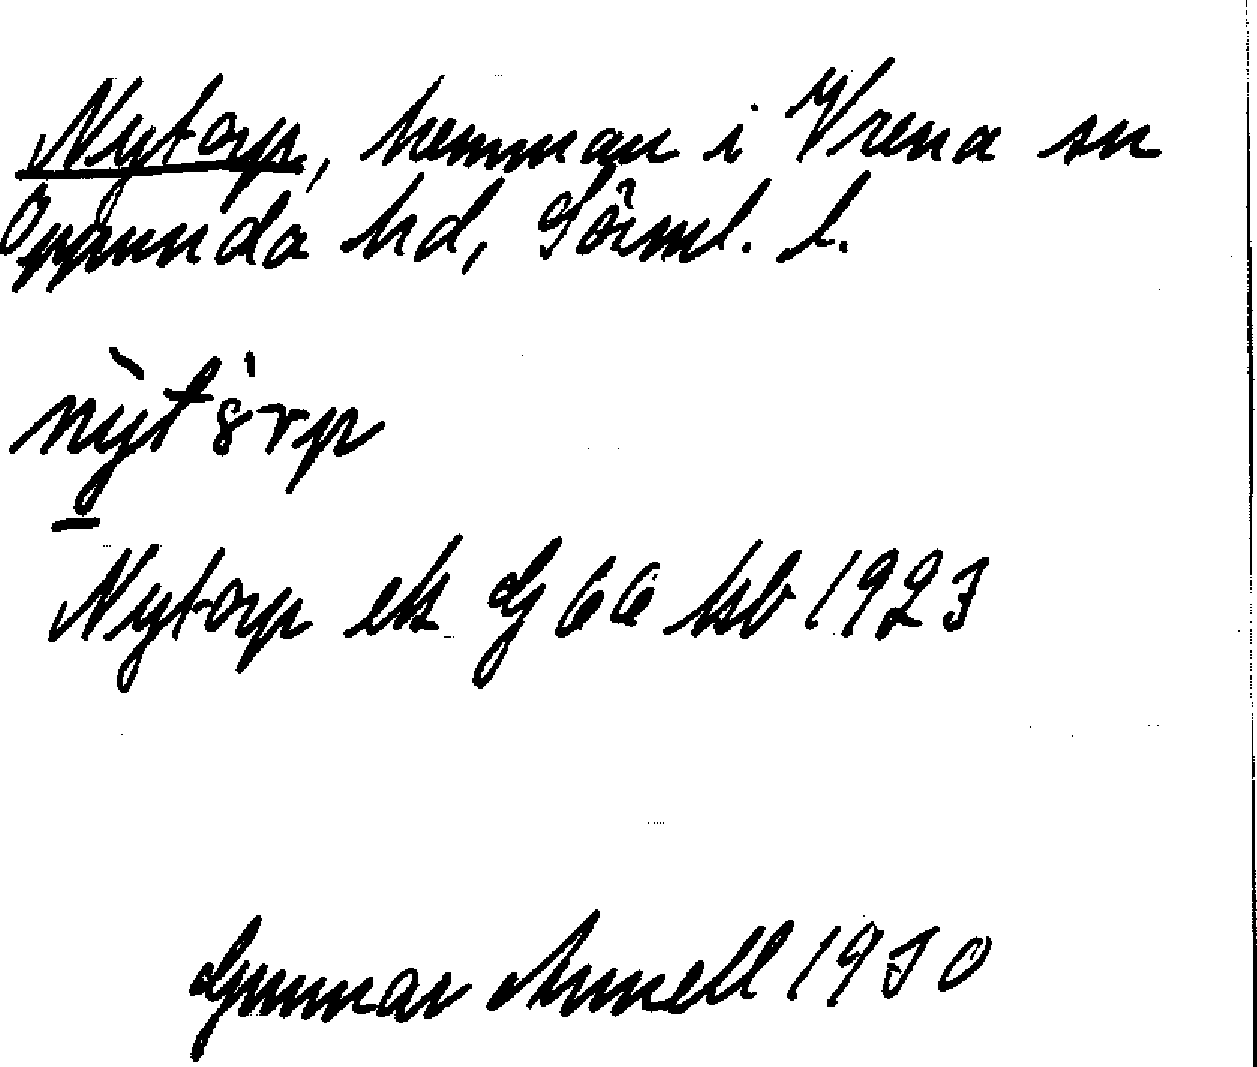 Nytorp, hemman i Vrena sn
Oppunda hd, Sörml. l.
nỳtȯrp
Nytorp ek G 66 hb 1923
Gunnar 1930